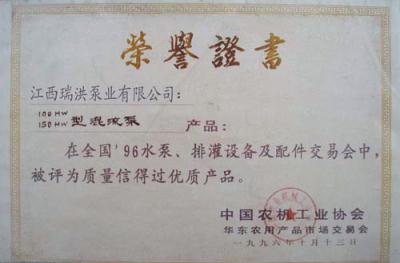 榮譽證書
江西瑞洪泵业有限公司：
100HW
150HW 型混流泵 产品：
在全国'96水泵、排灌设备及配件交易会中，
被评为质量信得过优质产品。
中国农机工业协会
华东农用产品市场交易会
一九九六年十月十三日